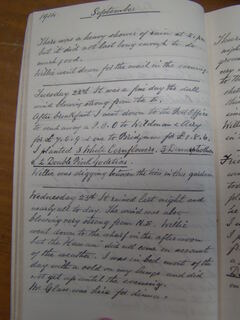 1914 September
There was a heavy shower of rain at 2. p.m.
but it did not last long enough to do
much good.
Willie went down for the mail in the evening.
Tuesday 22d It was a fine day the
wind blowing strong from the E.
After breakfast I went down to the Post Office
to send away a P.O.O to Wildman &
for £ 7. 6. 9 one to Bridgman for £
I planted 3 White Cornflowers,
& 2 Double Pink
Willie was digging between the
in his garden
Wednesday 23d It rained last night and
nearly all to day. The wind was also
blowing very strong from N.E. Willie
went down to the wharf in the afternoon
but the did not come on account
of the weather. I was in bed most of the
day with a cold on my lungs and did
not get up until the evening.
Mr was here for dinner.